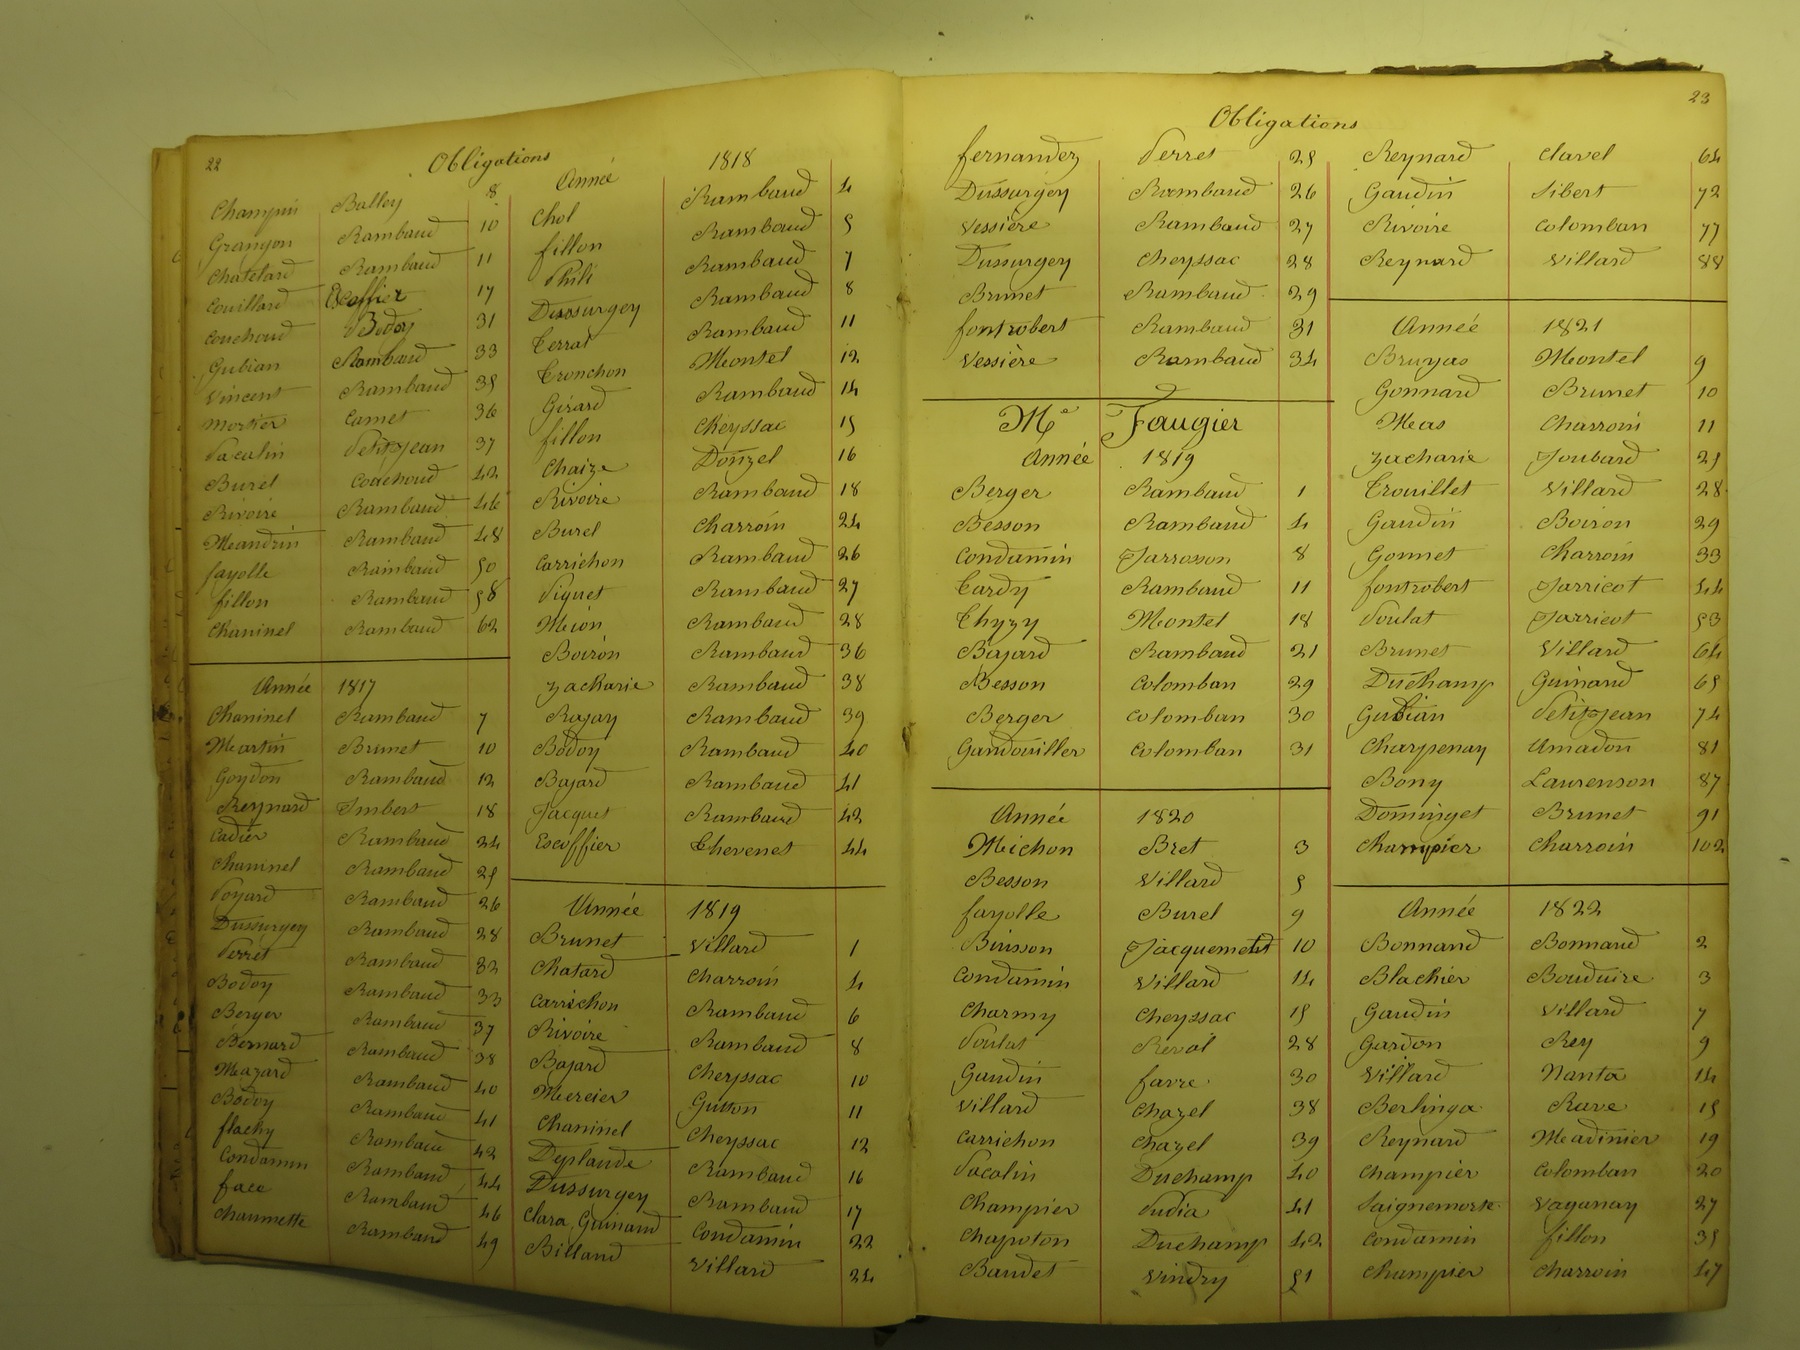 22
Obligations
Champin Balley 8
Grangon Rambaud 10
Chatelard Rambaud 11
Couillard Escoffier 17
Couchoud Bodoy 31
Gubian Rambaud 33
Vincent Rambaud 35
Mortier Camet 36
Pacalin Petitjean 37
Burel Couchoud 42
Rivoire Rambaud 46
Meandrin Rambaud 48
fayolle Rambaud 50
fillon Rambaud 58
Chaninel Rambaud 62
Année 1817
Chaninel Rambaud 7
Martin Brunet 10
Goydon Rambaud 12
Reynard Imbert 18
Cadier Rambaud 24
Chaninel Rambaud 25
Poyard Rambaud 26
Dussurgey Rambaud 28
Perret Rambaud 32
Bodoy Rambaud 33
Berger Rambaud 37
Bernard Rambaud 38
Mazard Rambaud 40
Bodoy Rambaud 41
flachy Rambaud 42
Condamin Rambaud 44
face Rambaud 46
Chaumette Rambaud 49
Année 1818
Chol Rambaud 4
fillon Rambaud 5
Phili Rambaud 7
Dussurgey Rambaud 8
Terrat Rambaud 11
Tronchon Montel 12
Girard Rambaud 14
fillon Cheyssac 15
Chaize Donzel 16
Rivoire Rambaud 18
Burel Charroin 24
Carrichon Rambaud 26
Piquet Rambaud 27
Mion Rambaud 28
Boiron Rambaud 36
Zacharie Rambaud 38
Rajay Rambaud 39
Bodoy Rambaud 40
Bajard Rambaud 41
Jacquet Rambaud 42
Escoffier Thevenet 44
Année 1819
Brunet Villard 1
Chatard Charroin 4
Carrichon Rambaud 6
Rivoire Rambaud 8
Bajard Cheyssac 10
Mercier Gutton 11
Chaninel Cheyssac 12
Deplaude Rambaud 16
Dussurgey Rambaud 17
Clara, Guinand Condamin 22
Billand Villard 24
23
Obligations
fernandez Perret 25
Dussurgey Rambaud 26
Vessière Rambaud 27
Dussurgey Cheyssac 28
Brunet Rambaud 29
fontrobert Rambaud 31
Vessière Rambaud 34
Me Faugier
Année 1819
Berger Rambaud 1
Besson Rambaud 4
Condamin Jarrosson 8
Tardy Rambaud 11
Thyzy Montel 18
Bajard Rambaud 21
Besson Colomban 29
Berger Colomban 30
Gandouiller Colomban 31
Année 1820
Michon Bret 3
Besson Villard 5
fayolle Burel 9
Buisson Jacquemetst 10
Condamin Villard 14
Charmy Cheyssac 15
Poulat Revol 28
Gaudin favre 30
Villard Chazel 38
Carrichon Chazel 39
Pacalin Duchamp 40
Champier Pudia 41
Chapoton Duchamp 42
Baudet Vindry 51
Reynard Clavel 64
Gaudin Sibert 72
Rivoire Colomban 77
Reynard Villard 88
Année 1821
Bruyas Montel 9
Gonnard Brunet 10
Meas Charroin 11
Zacharie Joubard 25
Trouillet Villard 28
Gaudin Boiron 29
Gonnet Charroin 33
fontrobert Jarricot 44
Poulat Jarricot 53
Brunet Villard 64
Duchamp Guinand 65
Gubian Petitjean 74
Charpenay Amadon 81
Bony Laurenson 87
Dominget Brunet 91
Champier Charroin 102
Année 1822
Bonnand Bonnand 2
Blachier Bouduire 3
Gaudin Villard 7
Gardon Rey 9
Villard Nanta 14
Berlinga Rave 15
Reynard Meadinier 19
Champier Colomban 20
Saignemorte Vaganay 27
Condamin fillon 35
Champier Charroin 47